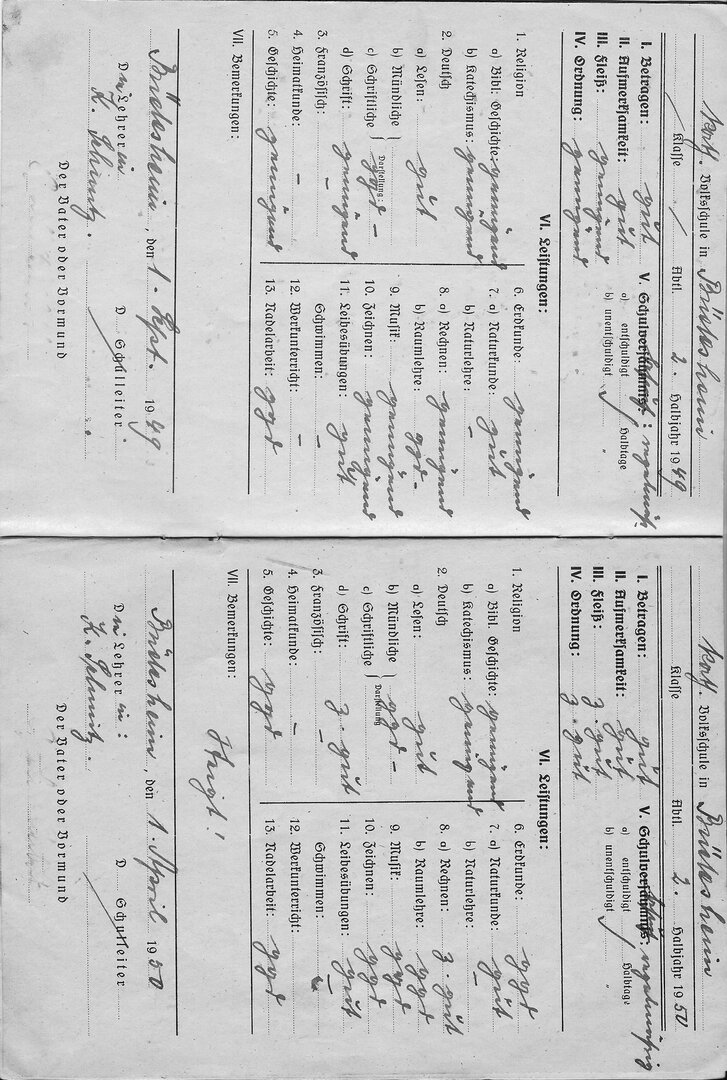 Kath. Volksschule in Büdesheim
Klasse / Abtl. 2. Halbjahr 1949
I. Betragen: gut
II. Aufmerksamkeit: gut
III. Fleiß: genügend
IV. Ordnung: genügend
V. Schulbesuch: regelmäß.
a) entschuldigt Halbtage
b) unentschuldigt "
VI. Leistungen:
1. Religion
a) Bibl. Geschichte: genügend
b) Katechismus: genügend
2. Deutsch
a) Lesen: gut
b) Mündliche
c) Schriftliche
Darstellung: ggd -
d) Schrift: genügend
3. Französisch: –
4. Heimatkunde: –
5. Geschichte: genügend
6. Erdkunde: genügend
7. a) Naturkunde: gut
b) Naturlehre: –
8. a) Rechnen: genügend
b) Raumlehre: ggd -
9. Musik: genügend
10. Zeichnen: genügend
11. Leibesübungen: gut
Schwimmen: –
12. Werkunterricht: –
13. Nadelarbeit: ggd
VII. Bemerkungen:
Büdesheim, den 1. Sept. 1949
Die Lehrerin
D Schulleiter
K. Schmitz.
Der Vater oder Vormund
Kath. Volksschule in Büdesheim
Klasse Abtl. 2. Halbjahr 1950
I. Betragen: gut
II. Aufmerksamkeit: gut
III. Fleiß: z. gut
IV. Ordnung: z. gut
V. Schulbesuch: regelmäßig
a) entschuldigt Halbtage
b) unentschuldigt "
VI. Leistungen:
1. Religion
a) Bibl. Geschichte: genügend
b) Katechismus: genügend
2. Deutsch
a) Lesen: gut
b) Mündliche
c) Schriftliche
Darstellung ggd -
d) Schrift: z. gut
3. Französisch: –
4. Heimatkunde: –
5. Geschichte: ggd
6. Erdkunde: ggd
7. a) Naturkunde: gut
b) Naturlehre: –
8. a) Rechnen: z. gut
b) Raumlehre: ggd
9. Musik: ggd
10. Zeichnen: ggd
11. Leibesübungen: gut
Schwimmen: –
12. Werkunterricht:
13. Nadelarbeit: ggd
VII. Bemerkungen: Steigt!
Büdesheim, den 1. April 1950
Die Lehrerin:
D Schulleiter
K. Schmitz.
Der Vater oder Vormund